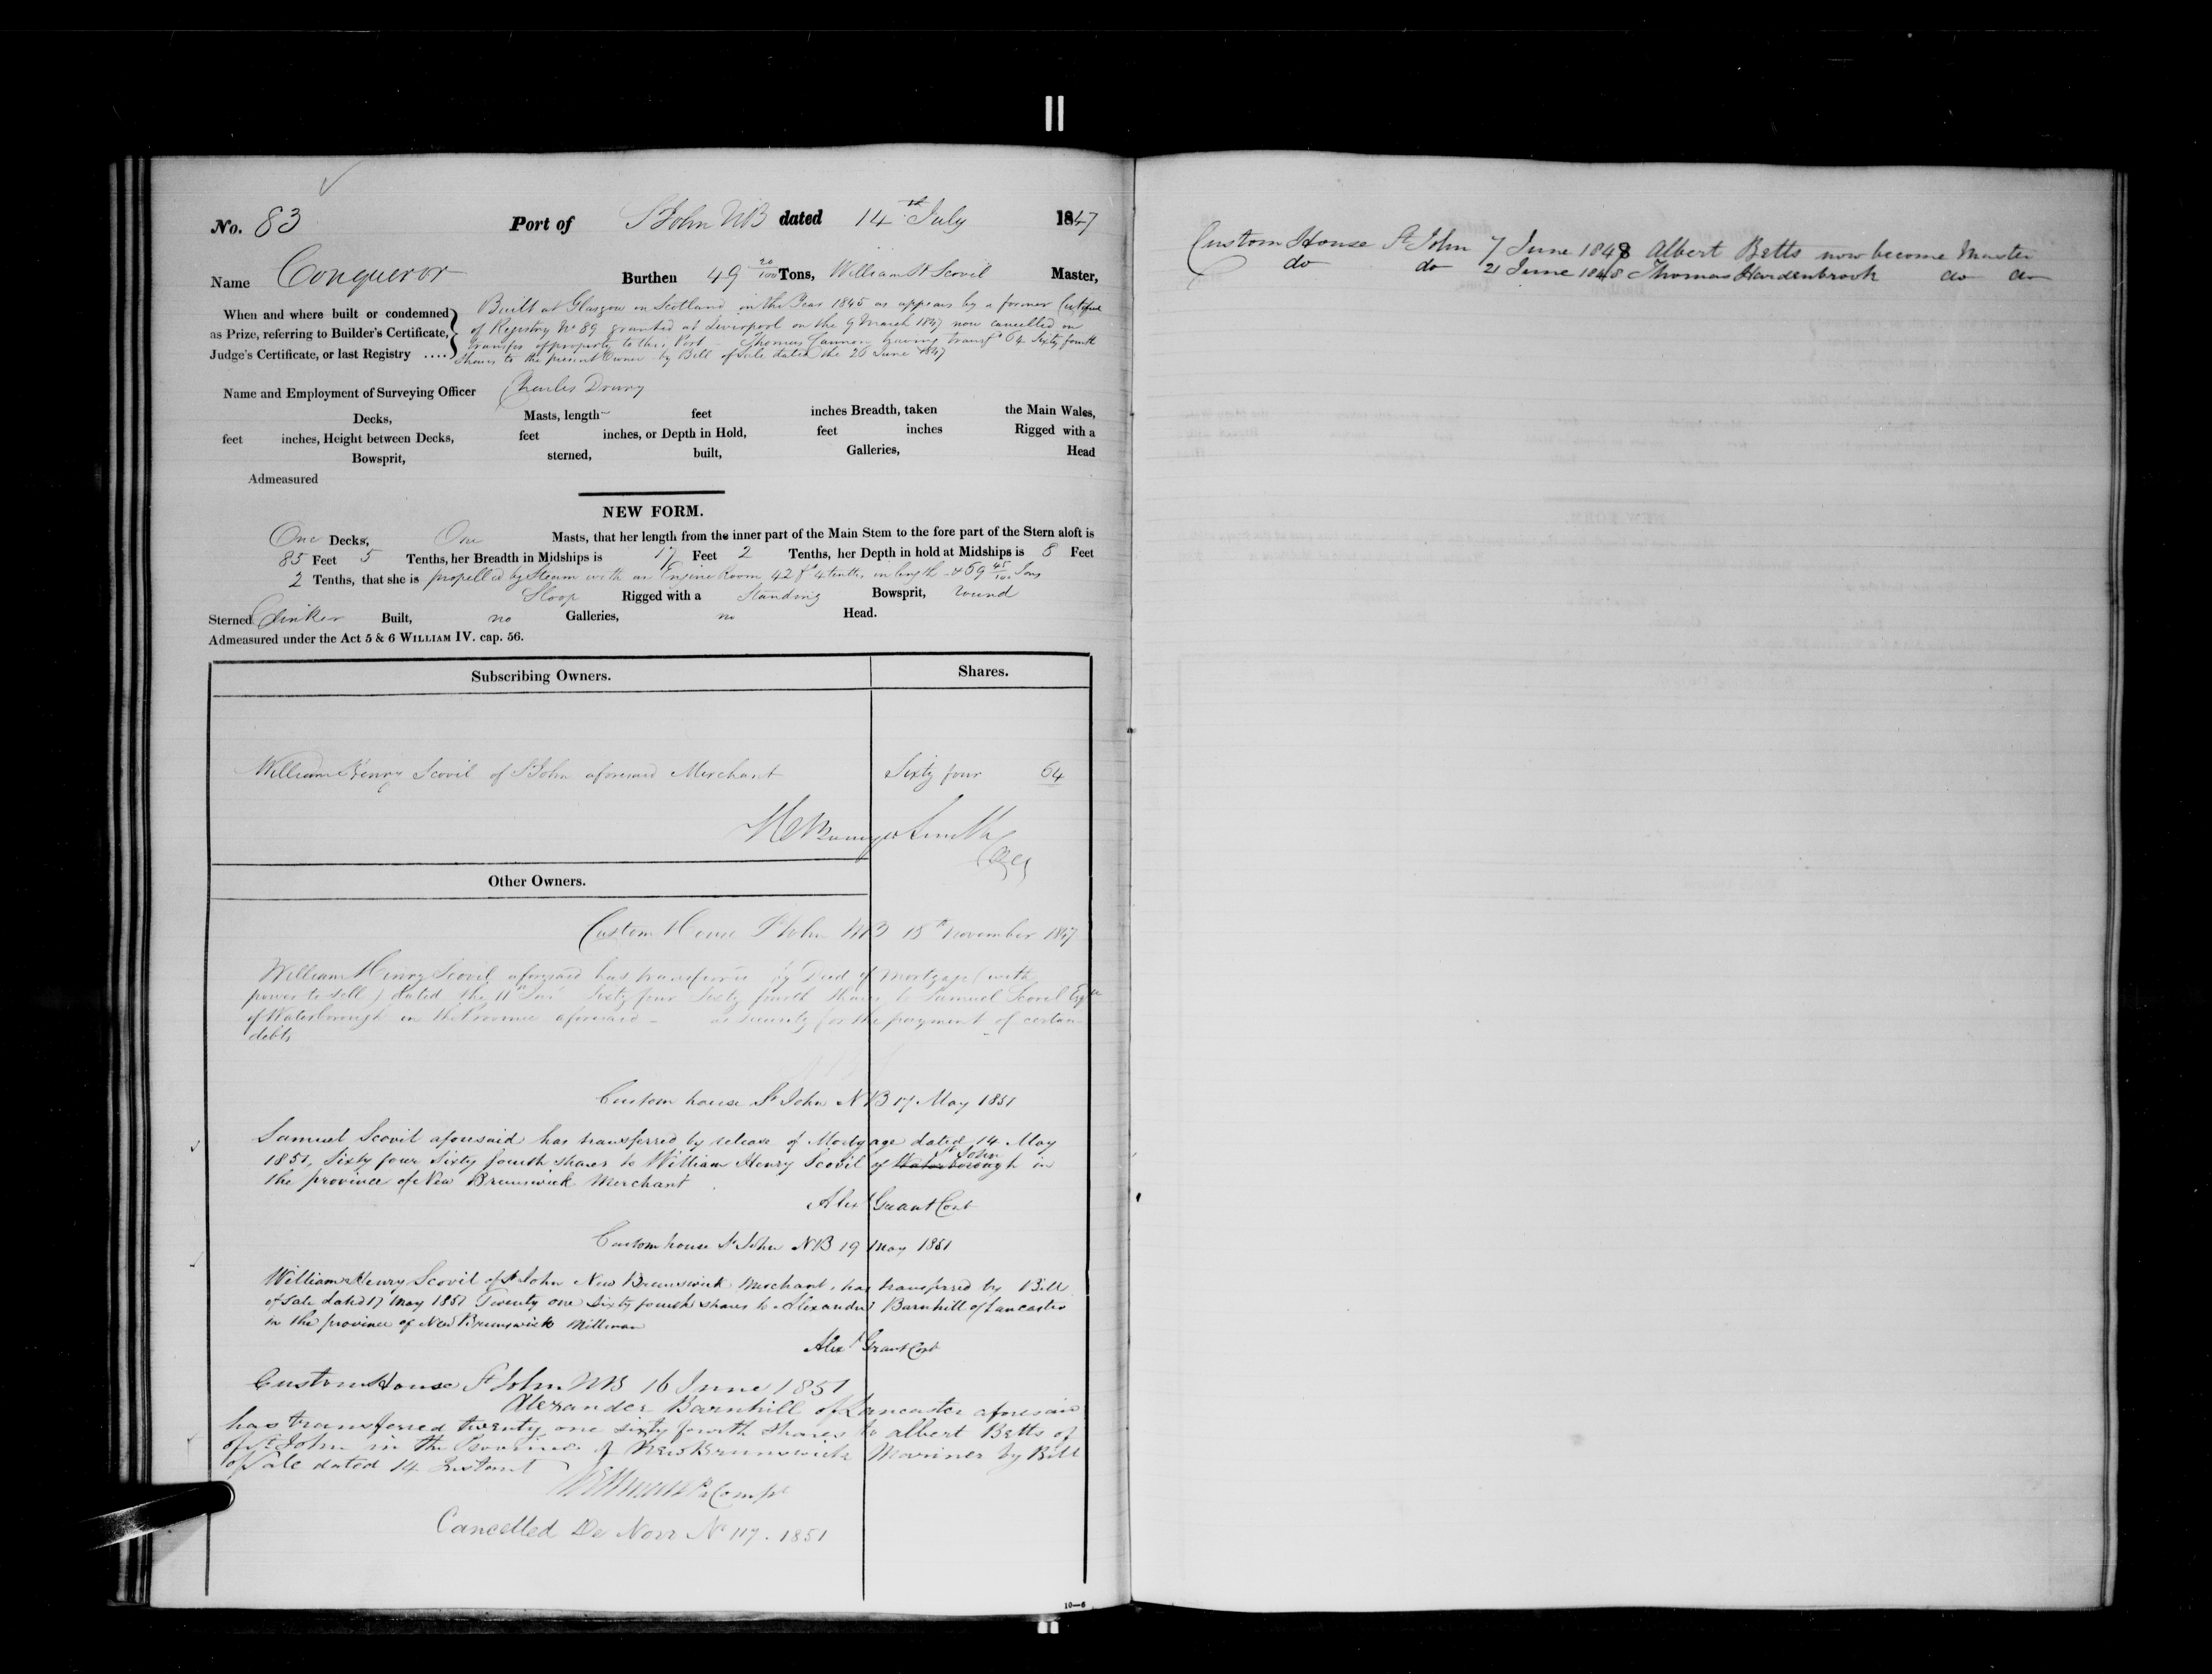 No. 83 Port of St John NB dated 14th July 1847
Name Conqueror Burthen 49 20/100 Tons, William H Scovil Master,
When and where built or condemned as Prize, referring to Builder's Certificate, Judge's Certificate, or last Registry ....
Built at Glasgow in Scotland in the Year 1845 as appears by a former Certificate
of Registry No 89 granted at Liverpool on the 9 March 1847 now cancelled on
transfer of property to this Port - Thomas Cannon having transfd 64 Sixty fourth
Shares to the present Owner by Bill of Sale dated the 26 June 1847
Name and Employment of Surveying Officer Charles Drury
Decks, Masts, length feet inches Breadth, taken the Main Wales,
feet inches, Height between Decks, feet inches, or Depth in Hold, feet inches Rigged with a
Bowsprit, sterned, built, Galleries, Head
Admeasured
NEW FORM.
One Decks, One Masts, that her length from the inner part of the Main Stem to the fore part of the Stern aloft is
85 Feet 5 Tenths, her Breadth in Midships is 17 Feet 2 Tenths, her Depth in hold at Midships is 8 Feet
2 Tenths, that she is propelled by Steam with an Engine Room 42 ft 4 tenths in length & 69 45/100 Tons
Sloop Rigged with a Standing Bowsprit, round
Sterned Clinker Built, no Galleries, no Head.
Admeasured under the Act 5 & 6 WILLIAM IV. cap. 56.
Subscribing Owners. Shares.
William Henry Scovil of St John aforesaid Merchant Sixty four 64
Smith
Other Owners.
Custom House St John NB 18th November 1847
William Henry Scovil aforesaid has transferred by Deed of Mortgage (with
power to sell) dated the 11th Inst Sixty four Sixty fourth Shares to Samuel Scovil Esqre
of Waterborough in the Province aforesaid - as security for the payment of certain
debts
Custom house St John NB 17 May 1851
Samuel Scovil aforesaid has transferred by release of Mortgage dated 14 May
1851, Sixty four Sixty fourth shares to William Henry Scovil of Waterborough St John in
the province of New Brunswick Merchant
Alexr Grant Cont
Custom house St John NB 19 May 1851
William Henry Scovil of St John New Brunswick Merchant, has transferred by Bill
of Sale dated 17 May 1851 Twenty one Sixty fourth shares to Alexander Barnhill of Lancaster
in the province of New Brunswick Millman
Alexr Grant Cont
Custom House St John NB 16 June 1851
Alexander Barnhill of Lancaster aforesaid
has transferred twenty one sixty fourth shares to Albert Betts of
of St John in the Province of New Brunswick Mariner by Bill
of Sale dated 14 Instant
Compr
Cancelled De Novo No 117. 1851
10—6
Custom House St John 7 June 1848 Albert Betts now become Master
do do 21 June 1848 Thomas Hardenbrook do do